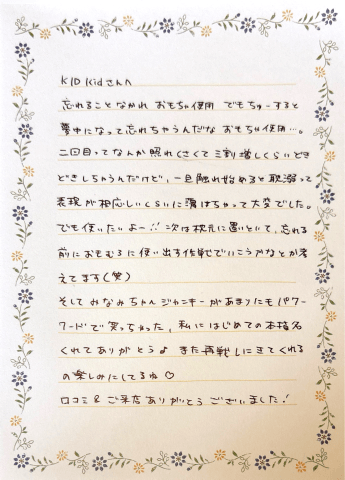 KID Kidさんへ
忘れることなかれ おもちゃ使用 でもちゅーすると
夢中になって忘れちゃうんだな おもちゃ使用…。
二回目ってなんか照れくさくて三割増しくらいどき
どきしちゃうんだけど、一旦触れ始めると耽溺って
表現が相応しいくらいに溺はちゃって大変でした。
でも使いたいよー!! 次は枕元に置いといて、忘れる
前におもむろに使い出す作戦でいこうかなとか考
えてます(笑)
そしてみなみちゃんジャンキーがあまりにもパワー
ワードで笑っちゃった。私にはじめての本指名
くれてありがとう♪ また再戦しにきてくれる
の楽しみにしてるね♡
口コミ & ご来店ありがとうございました!